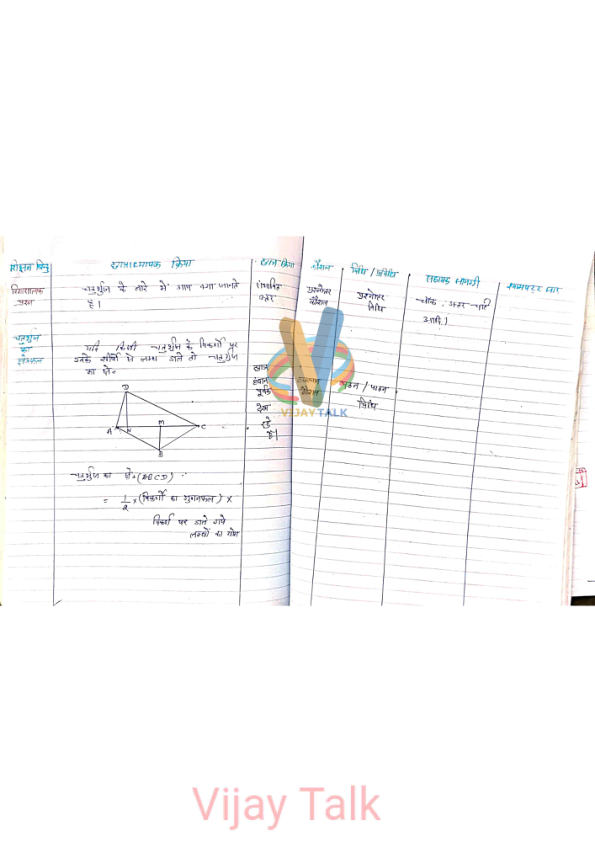 शिक्षण बिन्दु छात्राध्यापक क्रिया छात्र क्रिया कौशल विधि / प्रविधि सहायक सामग्री श्यामपट्ट सार
चतुर्भुज के बारे में आप क्या जानते
है।
संभावित
उत्तर
प्रश्नोत्तर
कौशल
प्रश्नोत्तर
विधि
चॉक
आदि।
चतुर्भुज
का
क्षेत्रफल
यदि किसी चतुर्भुज के विकर्णो पर
उनके शीर्षो से लम्ब डाले तो चतुर्भुज
का क्षे०
छात्र
ध्यान
पूर्वक
देख
रहे
है।
व्याख्यान
कौशल
विधि
D
A N M C
B
चतुर्भुज का क्षे० (ABCD)
= 1/2 × (विकर्णो का गुणनफल) ×
विकर्ण पर डाले गये
लम्बों का योग
VIJAY TALK
Vijay Talk